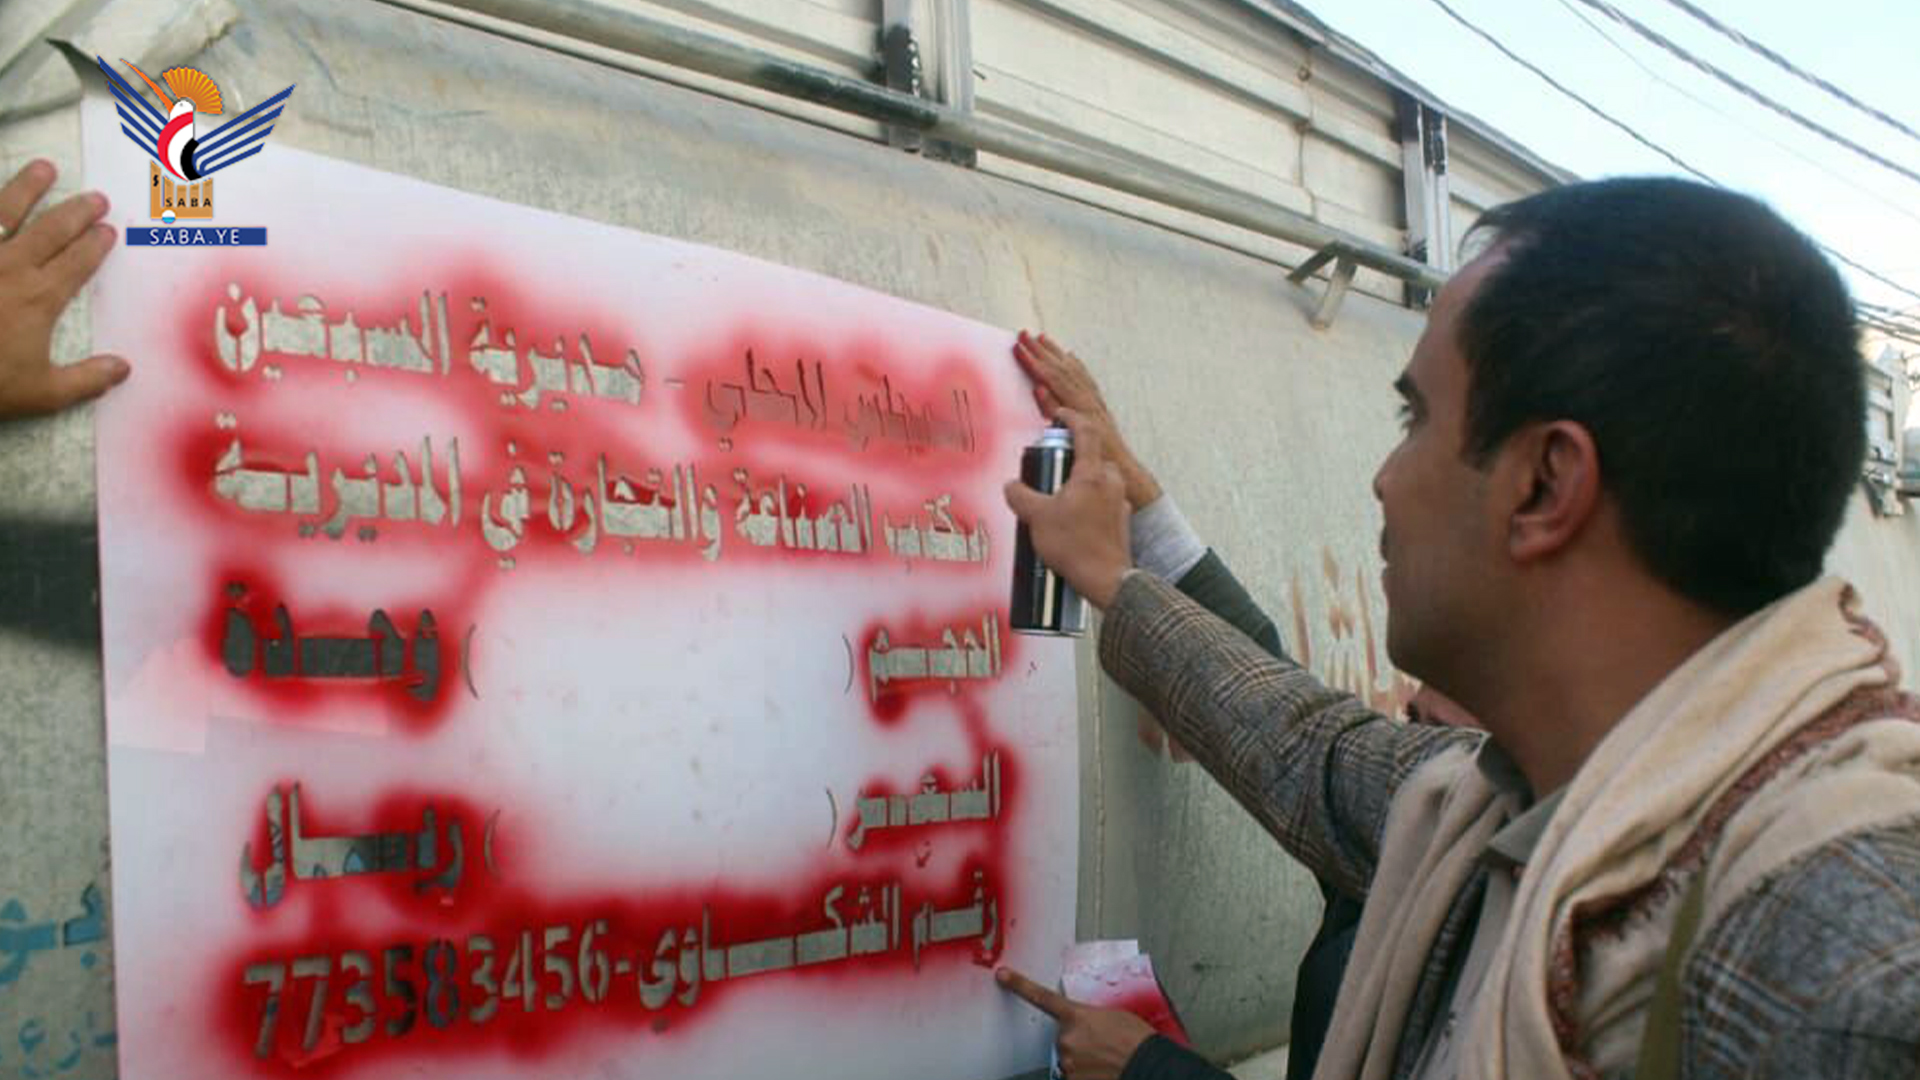 SABA
SABA.YE
المجلس المحلي - مديرية السبعين
مكتب الصناعة والتجارة في المديرية
الحجم ( ) وحدة
السعر ( ) ريال
رقم الشكاوي-773583456